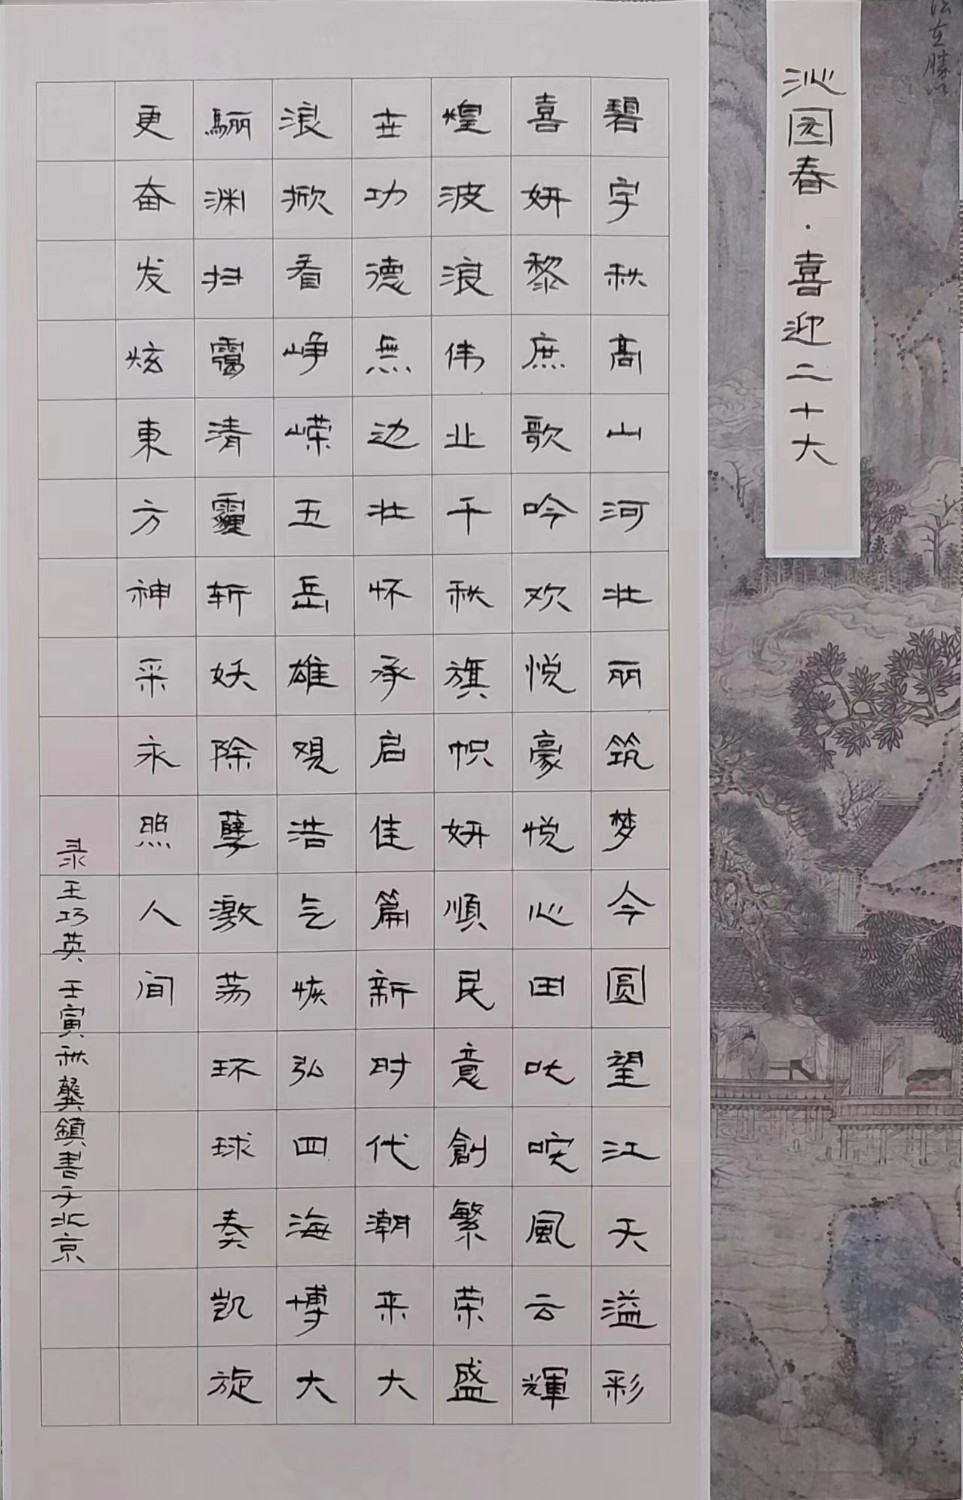 沁园春·喜迎二十大
碧宇秋高山河壮丽筑梦今圆望江天溢彩
喜妍黎庶歌吟欢悦豪悦心田叱咤風云輝
煌波浪伟业千秋旗帜妍順民意創繁荣盛
世功德無边壮怀承启佳篇新时代潮来大
浪掀看峥嵘五岳雄观浩气恢弘四海博大
骊渊扫霭清霾斩妖除孽激荡环球奏凯旋
更奋发炫東方神采永照人间
录王巧英 壬寅秋龚鎮書于北京